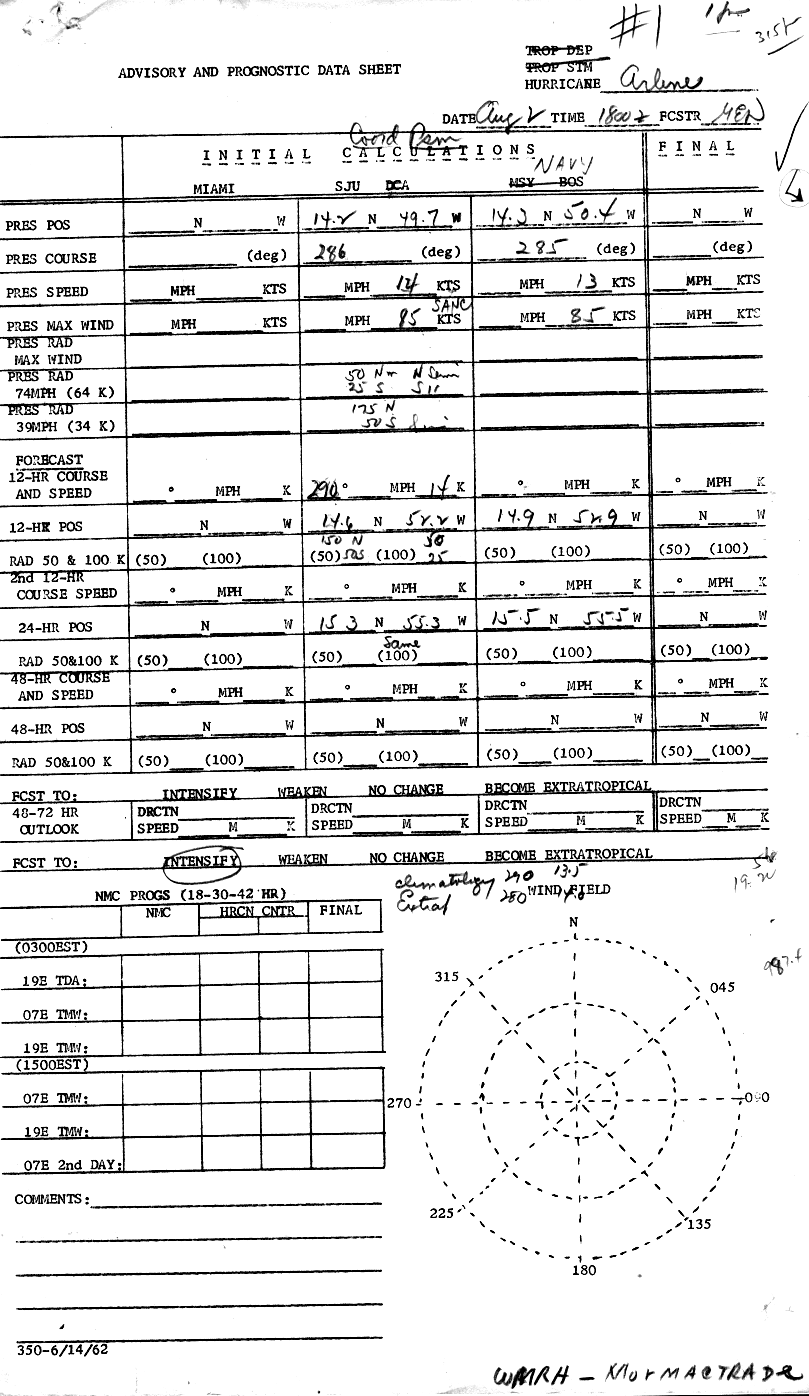 #1
31st
ADVISORY AND PROGNOSTIC DATA SHEET
TROP DEP
TROP STM
HURRICANE Arlene
DATE Aug 2 TIME 1800 z FCSTR
Coord
INITIAL CALCULATIONS FINAL
NAVY
MIAMI SJU DCA MSY BOS
PRES POS N W 14.2 N 49.7 W 14.3 N 50.4 W N W
PRES COURSE (deg) 286 (deg) 285 (deg) (deg)
PRES SPEED MPH KTS MPH 14 KTS MPH 13 KTS MPH KTS
SAME
PRES MAX WIND MPH KTS MPH 85 KTS MPH 85 KTS MPH KTS
PRES RAD
MAX WIND
PRES RAD 50 N N Semi
74MPH (64 K) 25 S S
PRES RAD 175 N
39MPH (34 K) 50 S Semi
FORECAST
12-HR COURSE
AND SPEED ° MPH K 290 ° MPH 14 K ° MPH K ° MPH K
12-HR POS N W 14.6 N 52.2 W 14.9 N 52.9 W N W
150 N 50
RAD 50 & 100 K (50) (100) (50) 50S (100) 25 (50) (100) (50) (100)
2nd 12-HR
COURSE SPEED ° MPH K ° MPH K ° MPH K ° MPH K
24-HR POS N W 15 3 N 55.3 W 15.5 N 55.5 W N W
Same
RAD 50&100 K (50) (100) (50) (100) (50) (100) (50) (100)
48-HR COURSE
AND SPEED ° MPH K ° MPH K ° MPH K ° MPH K
48-HR POS N W N W N W N W
RAD 50&100 K (50) (100) (50) (100) (50) (100) (50) (100)
FCST TO: INTENSIFY WEAKEN NO CHANGE BECOME EXTRATROPICAL
48-72 HR DRCTN DRCTN DRCTN DRCTN
OUTLOOK SPEED M K SPEED M K SPEED M K SPEED M K
FCST TO: INTENSIFY WEAKEN NO CHANGE BECOME EXTRATROPICAL
climatology 290 13.5
NMC PROGS (18-30-42 HR) 280 WIND FIELD
NMC HRCN CNTR FINAL
(0300EST)
19E TDA:
07E TMW:
19E TMW:
(1500EST)
07E TMW:
19E TMW:
07E 2nd DAY:
COMMENTS:
N
045
090
135
180
225
270
315
350-6/14/62
WMRH - MORMACTRADE